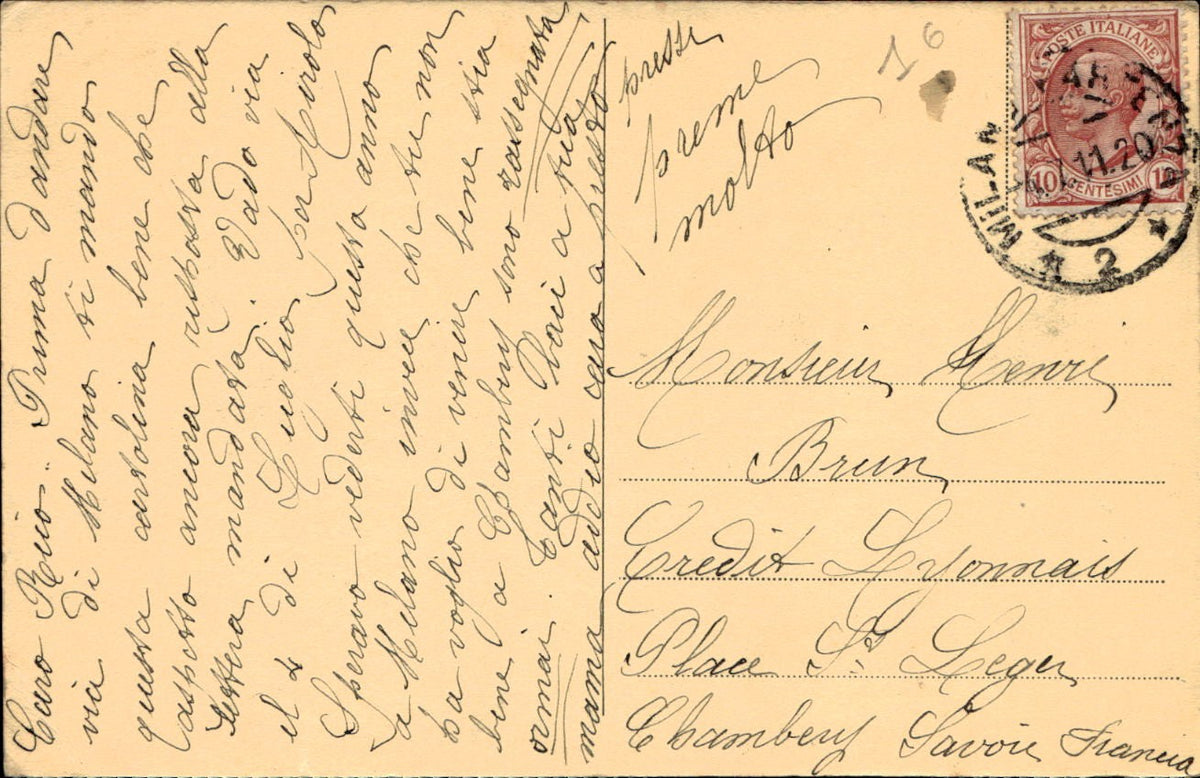 Caro Rico. Prima d'andare
via di Melano ti mando
questa cartolina bene che
aspetto ancora risposta alla
lettera mandata. Vado via
el 4 di Luglio per
Speravo vederti questa anno
a Melano invece che tu non
ha voglio di venire bene stia
bene a Chambery sono rassegnata
ormai. Tanti Baci a tua
mama addio caro a presto
presse
preme
molto
16
POSTE ITALIANE
10 CENTESIMI 10
MILANO
11.20
* 2 *
Monsieur Henri
Brun
Credit Lyonnais
Place St Leger
Chambery Savoie Francia